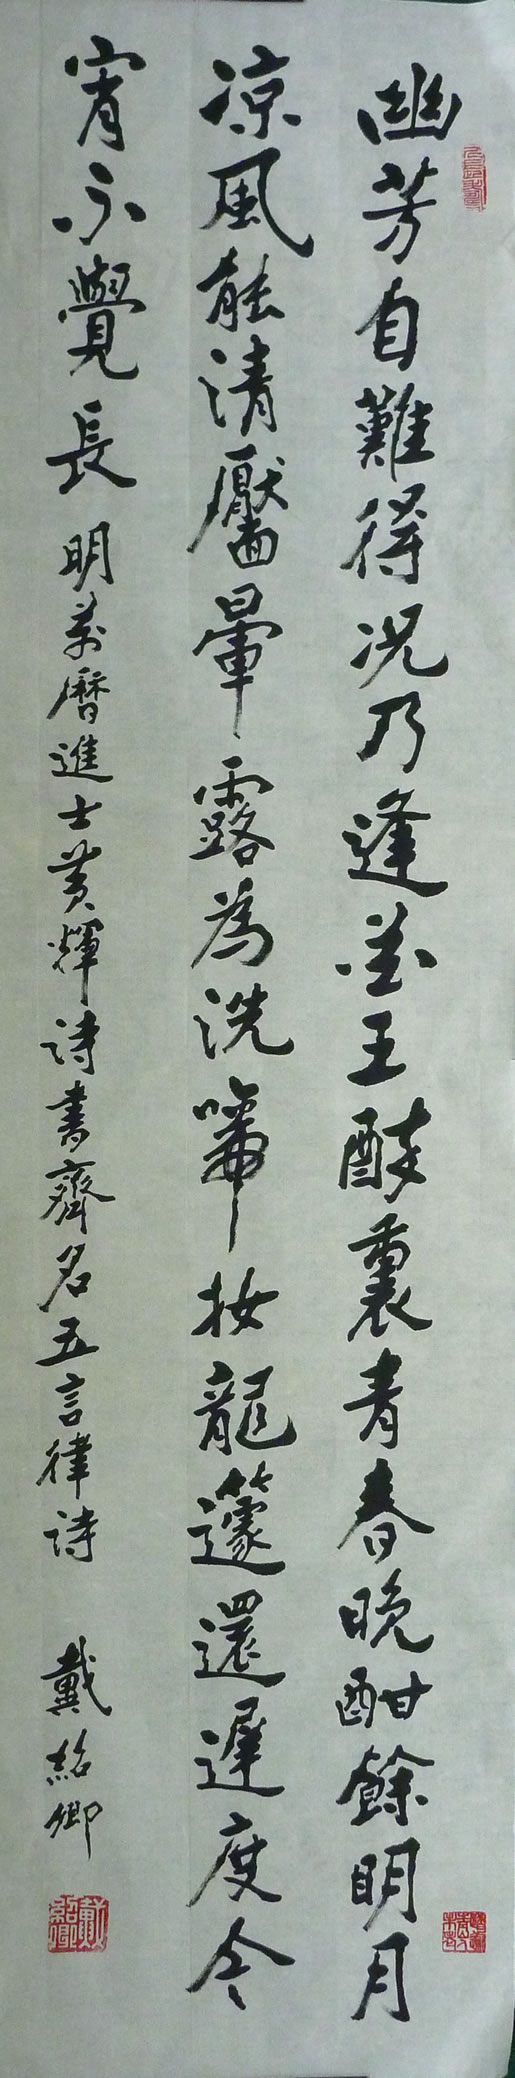 幽芳自難得况乃逢花王醉裏青春晚酣餘明月
凉風能清靨暈露為洗啼妝龍籧還遲度今
宵不覺長 明萬曆進士黄輝詩書齊名五言律詩 戴紹卿